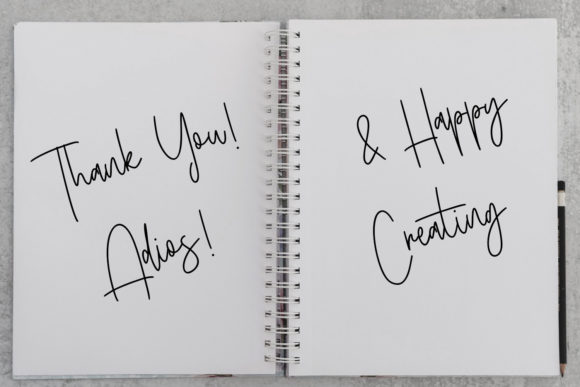 Thank You!
Adios!
& Happy
Creating